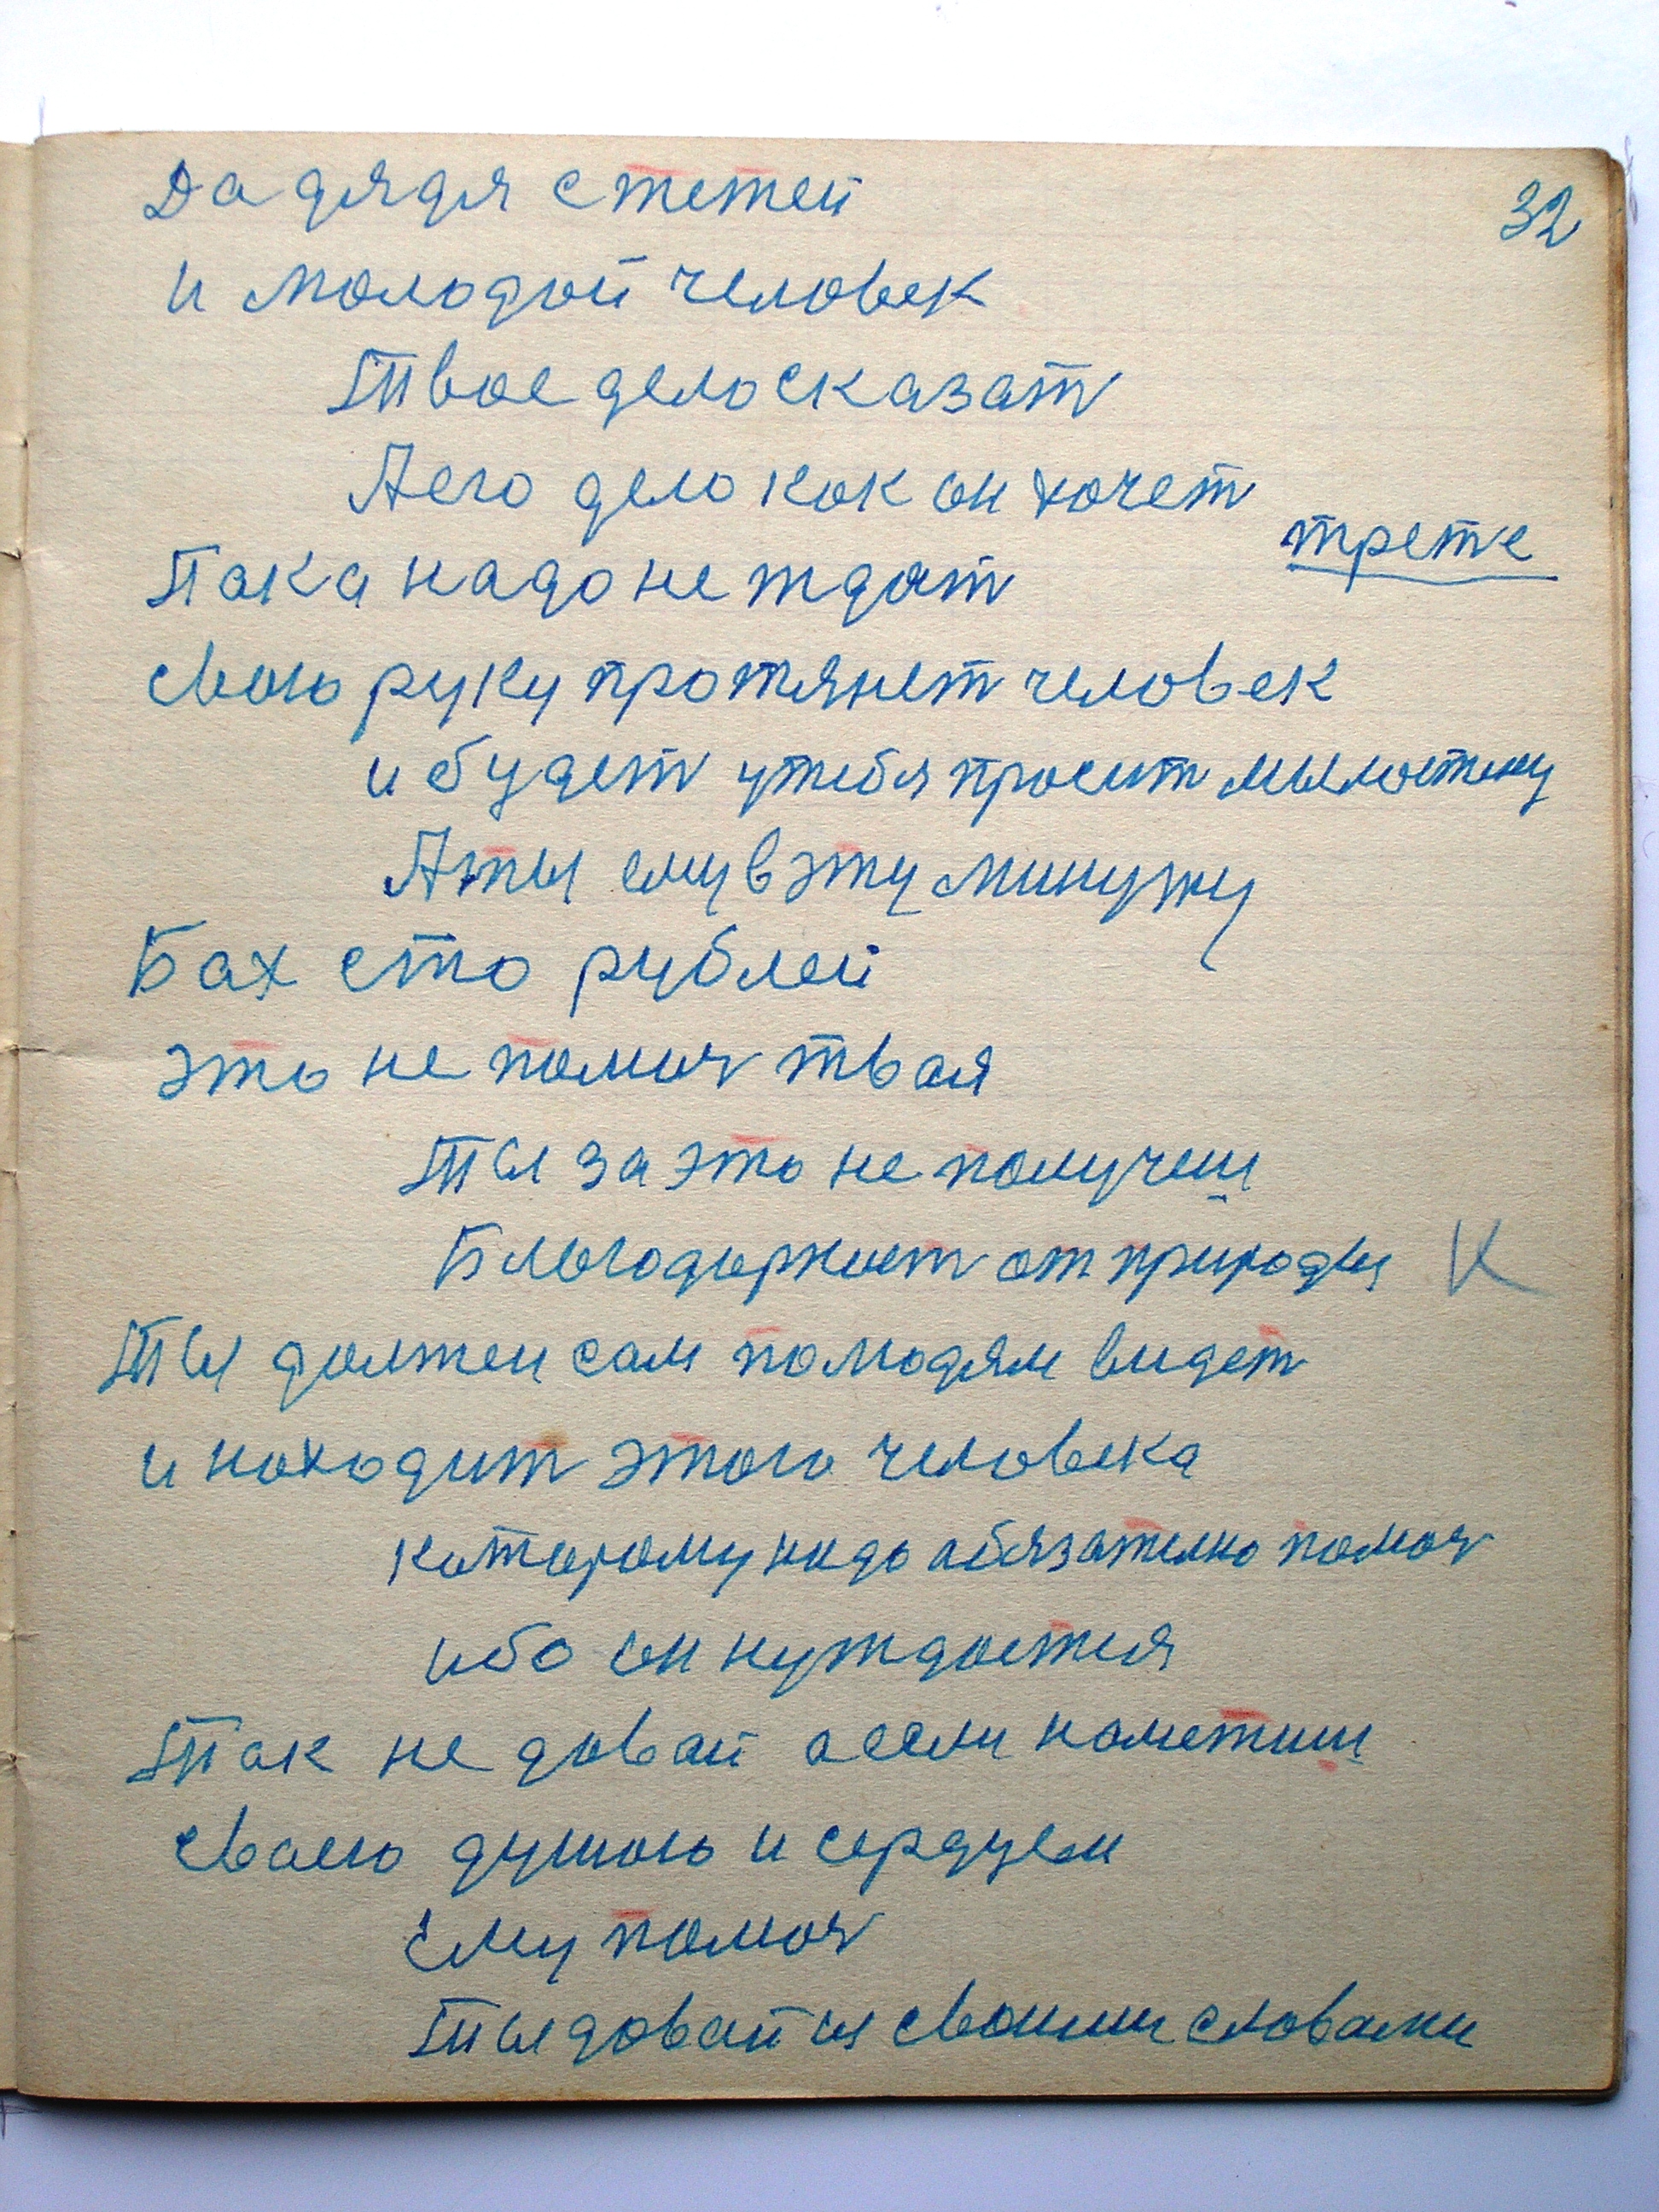 32
Да дядя с тетей
и молодой человек
Твое дело сказат
А его дело как он хочет
трете
Пака надо не ждат
свою руку протянет человек
и будет у тебя просит мылостину
А ты ему в эту минуту
Бах сто рублей
это не помоч твая
Ты за это не получиш
Благодарност от природы
Ты должен сам по людям видет
и находит этого человека
которому надо абязателно помоч
ибо он нуждается
Так не давай а если наметиш
сваею душою и сердцем
ему помоч
Ты давай их своими словами